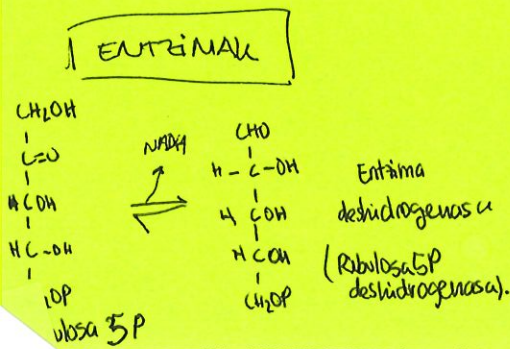 ENTZIMAK
CH2OH
C=O
HCOH
HC-OH
OP
ulosa 5P
NADH
CHO
H-C-OH
HCOH
HCOH
CH2OP
Entzima
deshidrogenasa
(Ribulosa5P
deshidrogenasa).